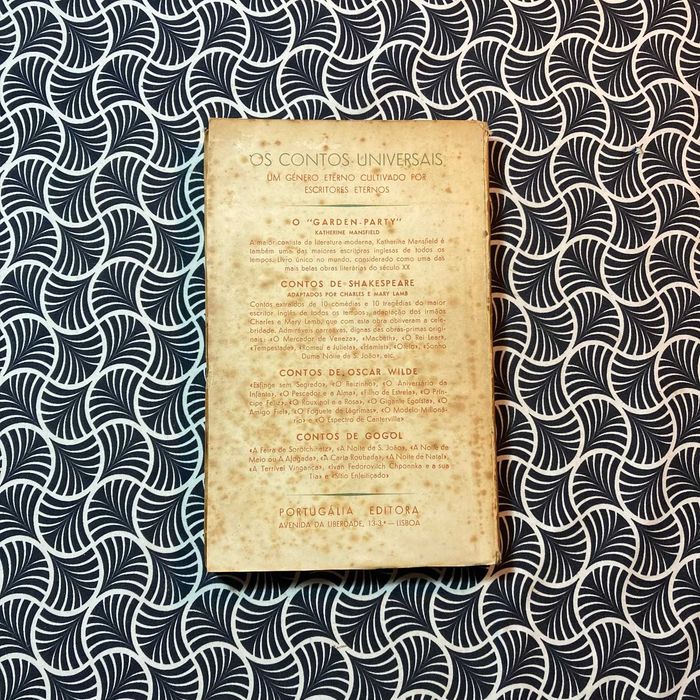 OS CONTOS UNIVERSAIS
UM GÉNERO ETERNO CULTIVADO POR
ESCRITORES ETERNOS
O "GARDEN-PARTY"
KATHERINE MANSFIELD
A maior contista da literatura moderna, Katherine Mansfield é
também uma das maiores escritoras inglesas de todos os
tempos. Livro único no mundo, considerado como uma das
mais belas obras literárias do século XX
CONTOS DE SHAKESPEARE
ADAPTADOS POR CHARLES E MARY LAMB
Contos extraídos de 10 comédias e 10 tragédias do maior
escritor inglês de todos os tempos, adaptação dos irmãos
Charles e Mary Lamb, que com esta obra obtiveram a cele-
bridade. Admiráveis narrativas, dignas das obras-primas origi-
nais: «O Mercador de Veneza», «Macbeth», «O Rei Lear»,
«Tempestade», «Romeu e Julieta», «Hamlet», «Otelo», «Sonho
Duma Noite de S. João», etc.
CONTOS DE OSCAR WILDE
«Esfinge sem Segredo», «O Reizinho», «O Aniversário da
Infanta», «O Pescador e a Alma», «Filho de Estrela», «O Prín-
cipe Feliz», «O Rouxinol e a Rosa», «O Gigante Egoísta», «O
Amigo Fiel», «O Foguete de Lágrimas», «O Modelo Milioná-
rio» e «O Espectro de Canterville»
CONTOS DE GOGOL
«A Feira de Sorotchinetz», «A Noite de S. João», «A Noite de
Maio ou A Afogada», «A Carta Roubada», «A Noite de Natal»,
«A Terrível Vingança», «Ivan Fedorovitch Chponnka e a sua
Tia» e «Sítio Enfeitiçado»
PORTUGÁLIA EDITORA
AVENIDA DA LIBERDADE, 13-3.º — LISBOA